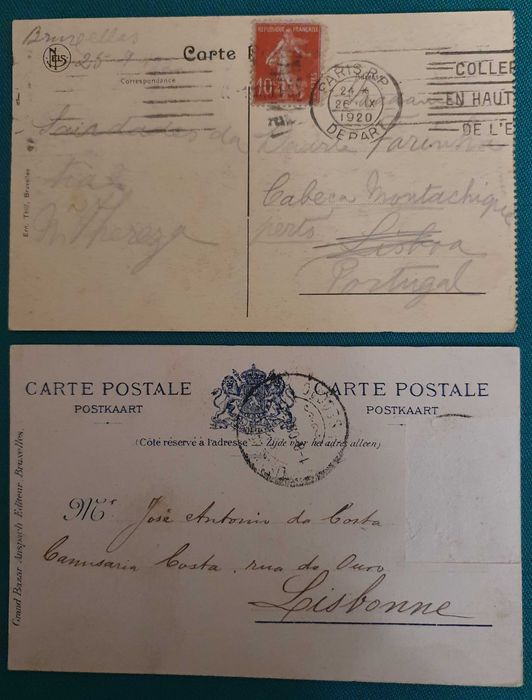 Bruxelles
25-9
NELS
Carte P
Correspondance
REPUBLIQUE FRANÇAISE
10
PARIS R.P.
24
26 IX
1920
DEPART
COLLE
EN HAUT
DE L'E
Saudades da
tia
M Thereza
Duarte Farinha
Cabeça Montachique
perto
Lisboa
Portugal
Ern. Thill, Bruxelles
CARTE POSTALE
POSTKAART
CARTE POSTALE
POSTKAART
(Côté réservé à l'adresse — Zijde voor het adres alleen)
Mr José Antonio da Costa
Camisaria Costa, rua do Ouro
Lisbonne
Grand Bazar Anspach Editeur Bruxelles.